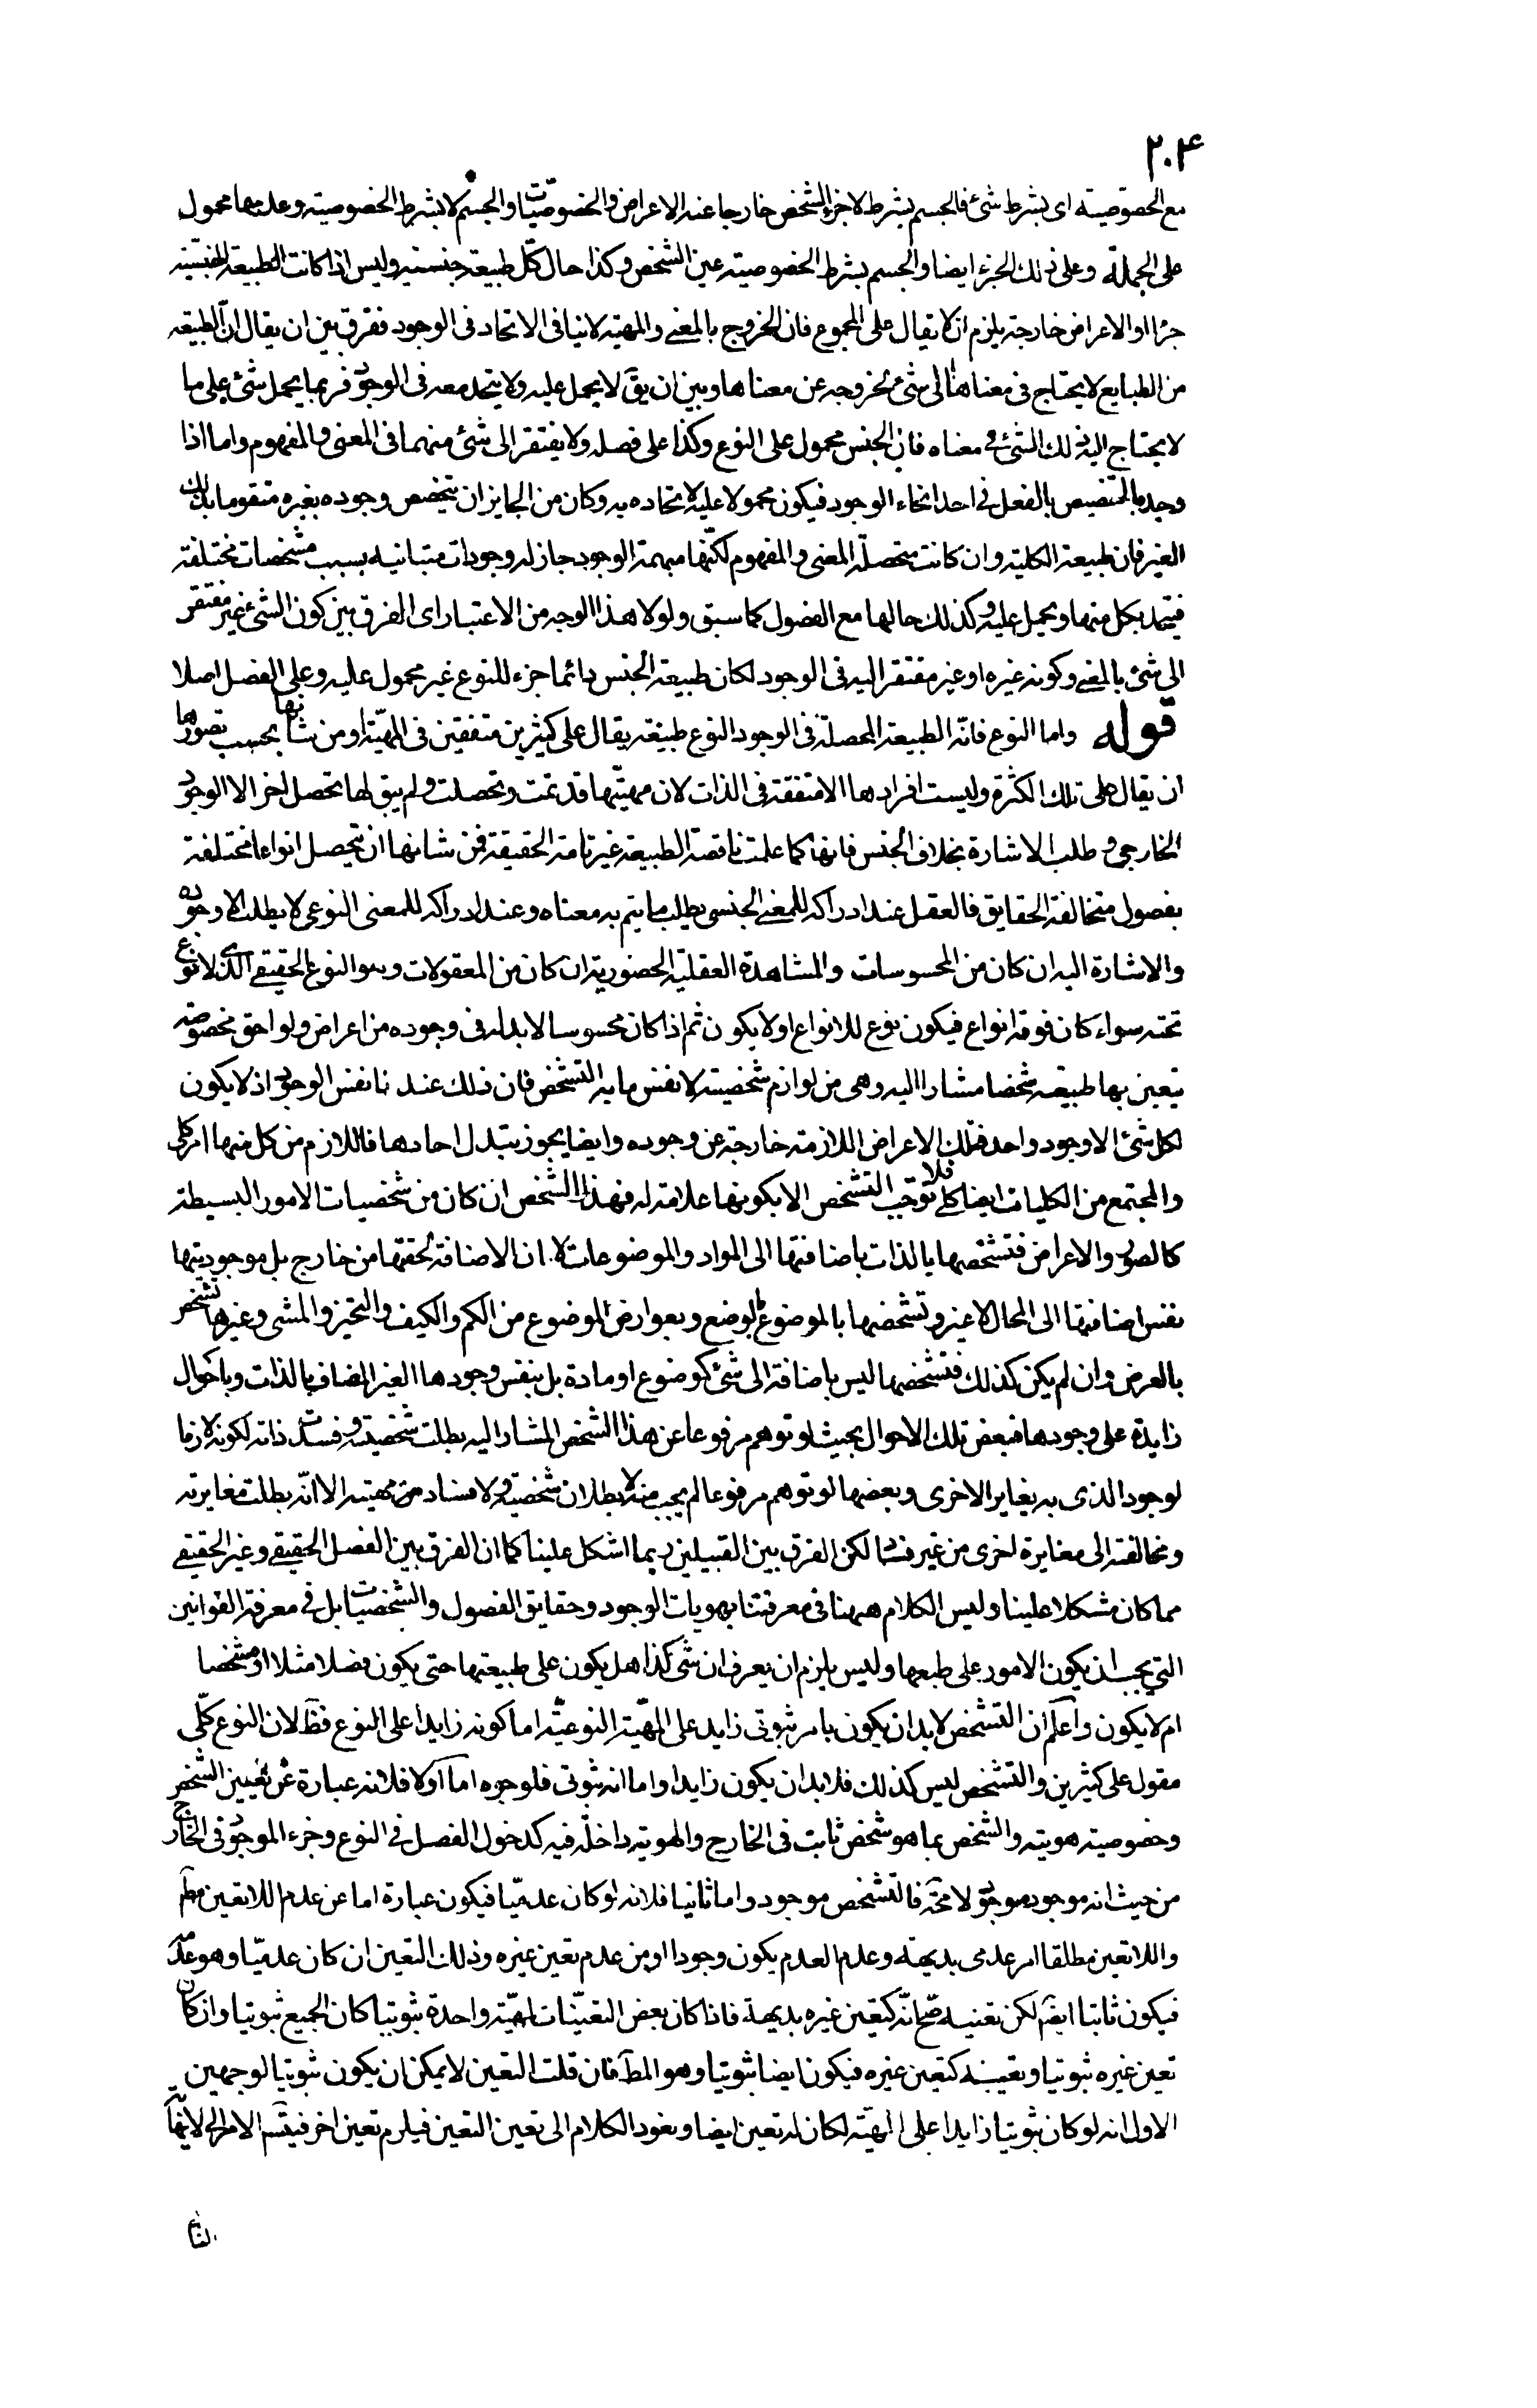 ٢٠٤
مع الخصوصية اى بشرط شئ فالجسم بشرط لا جزء الشخص خارجا عنه الاعراض والخصوصيّات والجسم لا بشرط الخصوصيته وعدمها محمول
على الجملة وعلى ذلك الجزء ايضا والجسم بشرط الخصوصيته عين الشخص وكذا حال كلّ طبيعة جنسته وليس اذا كانت الطبيعة الجنسيته
جزءا او الاعراض خارجة يلزم ان لا يقال على المجموع فان الخروج بالمعنى والمهيته لا ينافى الاتحاد فى الوجود ففرق بين ان يقال ان الطبيعة
من الطبايع لا يحتاج فى معناها الى شئ لخروجه عن معناها وبين ان يقَ لا يحمل عليه ولا يتحد معه فى الوجود فربما يحمل شئ على ما
لا يحتاج اليه ذلك الشئ فى معناه فان الجنس محمول على النوع وكذا على فصله ولا يفتقر الى شئ منهما فى المعنى والمفهوم واما اذا
وجد بالتخصيص بالفعل فى احد انحاء الوجود فيكون محمولا عليه لاتحاده به وكان من الجايز ان يتخصص وجوده بغيره متقوما بذلك
الغير فان طبيعة الكلية وان كانت متحصلة المعنى والمفهوم لكنّها مبهمة الوجود جاز له وجودات متباينه بسبب مشخصات مختلفة
فيتحد بكل منها ويحمل عليه وكذلك حالها مع الفصول كما سبق ولولا هذا الوجه من الاعتبار اى الفرق بين كون الشئ غير مفتقر
الى شئ بالمعنى وكونه غيره او غير مفتقر اليه فى الوجود لكان طبيعة الجنس دائما جزء للنوع غير محمول عليه وعلى الفصل اصلا
قوله واما النوع فانّه الطبيعة المحصلة فى الوجود النوع طبيعة يقال على كثيرين متفقين فى المهيّة او من شانها بحسب تصورها
ان يقال على تلك الكثرة وليست افرادها الا متفقة فى الذات لان مهيّتها قد تمت وتحصلت ولم يبق لها تحصل اخر الا الوجود
الخارجى وطلب الاشارة بخلاف الجنس فانها كما علمت ناقصة الطبيعة غير تامة الحقيقة فمن شانها ان يتحصل انواعا مختلفة
بفصول متخالفة الحقايق فالعقل عند ادراكه للمعنى الجنسى يطلب ما يتم به معناه وعند ادراكه للمعنى النوعى لا يطلب الا وجوده
والاشارة اليه ان كان من المحسوسات والمشاهدة العقليّة الحضورية ان كان من المعقولات وهو النوع الحقيقى الذى لا نوع
تحته سواء كان فوقه انواع فيكون نوع للانواع او لا يكون ثم اذا كان محسوسا لابد له فى وجوده من اعراض ولواحق مخصوصه
يتعين بها طبيعته شخصا مشارا اليه وهى من لوازم شخصيته لا نفس ما به التشخص فان ذلك عندنا نفس الوجود اذ لا يكون
لكل شئ الا وجود واحد فتلك الاعراض اللازمة خارجة عن وجوده وايضا يجوز تبدل احادها فاللازم من كل منها امر كلى
والمجتمع من الكليات ايضا كلى فلا توجب التشخص الا بكونها علامة له فهذا الشخص ان كان من شخصيات الامور البسيطة
كالصور والاعراض فتشخصها بالذات باضافتها الى المواد والموضوعات لا ان الاضافة لحقتها من خارج بل موجوديتها
نفس اضافتها الى المحال لا غير وتشخصها بالموضوع والوضع وبعوارض الموضوع من الكم والكيف والتحيز والمشى وغيرها تشخص
بالعرض وان لم يكن كذلك فتشخصها ليس باضافة الى شئ كموضوع او مادة بل بنفس وجودها الغير المضاف بالذات وباحوال
زايدة على وجودها فبعض تلك الاحوال بحيث لو توهم مرفوعا عن هذا الشخص المشار اليه بطلت شخصيته وفسدت ذاته لكونه لازما
لوجود الذى به يغاير الاخرى وبعضها لو توهم مرفوعا لم يجب منه لا بطلان شخصيته ولا فساد من مهيته الا انّه بطلت مغايرته
ومخالفته الى مغايرة اخرى من غير فساد لكن الفرق بين القبيلين ربما اشكل علينا كما ان الفرق بين الفصل الحقيقى وغير الحقيقى
مما كان مشكلا علينا وليس الكلام ههنا فى معرفتنا بهويات الوجود وحقايق الفصول والشخصيات بل فى معرفة القوانين
التى يجب ان يكون الامور على طبعها وليس يلزم ان يعرف ان شئ كذا هل يكون على طبيعتها حتى يكون فصلا مثلا او مشخصا
ام لا يكون واعلم ان التشخص لابد ان يكون بامر ثبوتى زايد على المهيّة النوعيّة اما كونه زايدا على النوع فظَ لان النوع كلّى
مقول على كثيرين والتشخص ليس كذلك فلا بد ان يكون زايدا واما انه ثبوتى فلوجوه اما اولا فلانه عبارة عن تعيين الشخص
وخصوصيته هويته والشخص بما هو شخص ثابت فى الخارج والهويته داخلة فيه كدخول الفصل فى النوع وجزء الموجود فى الخارج
من حيث انه موجود موجود لا محَة فالتشخص موجود واما ثانيا فلانه لو كان عدميّا فيكون عبارة اما عن عدم اللاتعين مطَم
واللاتعين مطلقا امر عدمى بديهة وعدم العدم يكون وجودا او من عدم تعين غيره وذلك التعين ان كان عدميّا وهو عدمه
فيكون ثابتا ايضَ لكن تعينه صّح انّه كتعين غيره بديهة فاذا كان بعض التعيّنات لمهيّة واحدة ثبوتيا كان الجميع ثبوتيا وان كان
تعين غيره ثبوتيا وتعينه كتعين غيره فيكون ايضا ثبوتيا وهو المطَ فان قلت التعين لا يمكن ان يكون ثبوتيا لوجهين
الاول انه لو كان ثبوتيا زايدا على المهيّة لكان له تعين ايضا ويعود الكلام الى تعين التعين فيلزم تعين اخر فيتسَم الامر الى لا نهاية